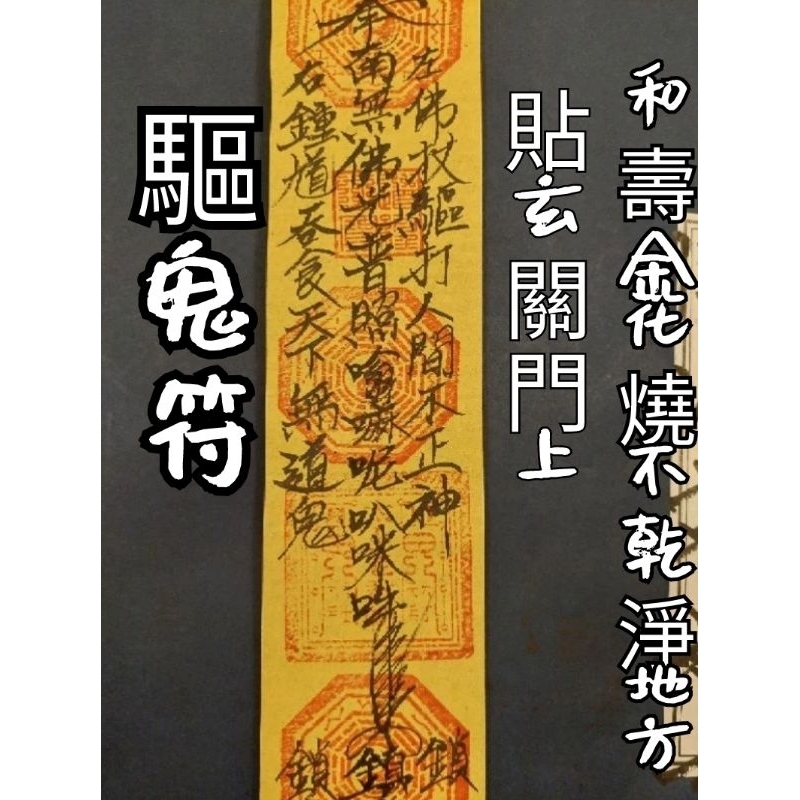 和壽金化燒不乾淨地方
貼玄關門上
左佛杖驅打人間不正神
奉南無佛光普照唵嘛呢叭咪吽
右鍾馗吞食天下無道鬼
鎖鎮鎖
驅鬼符